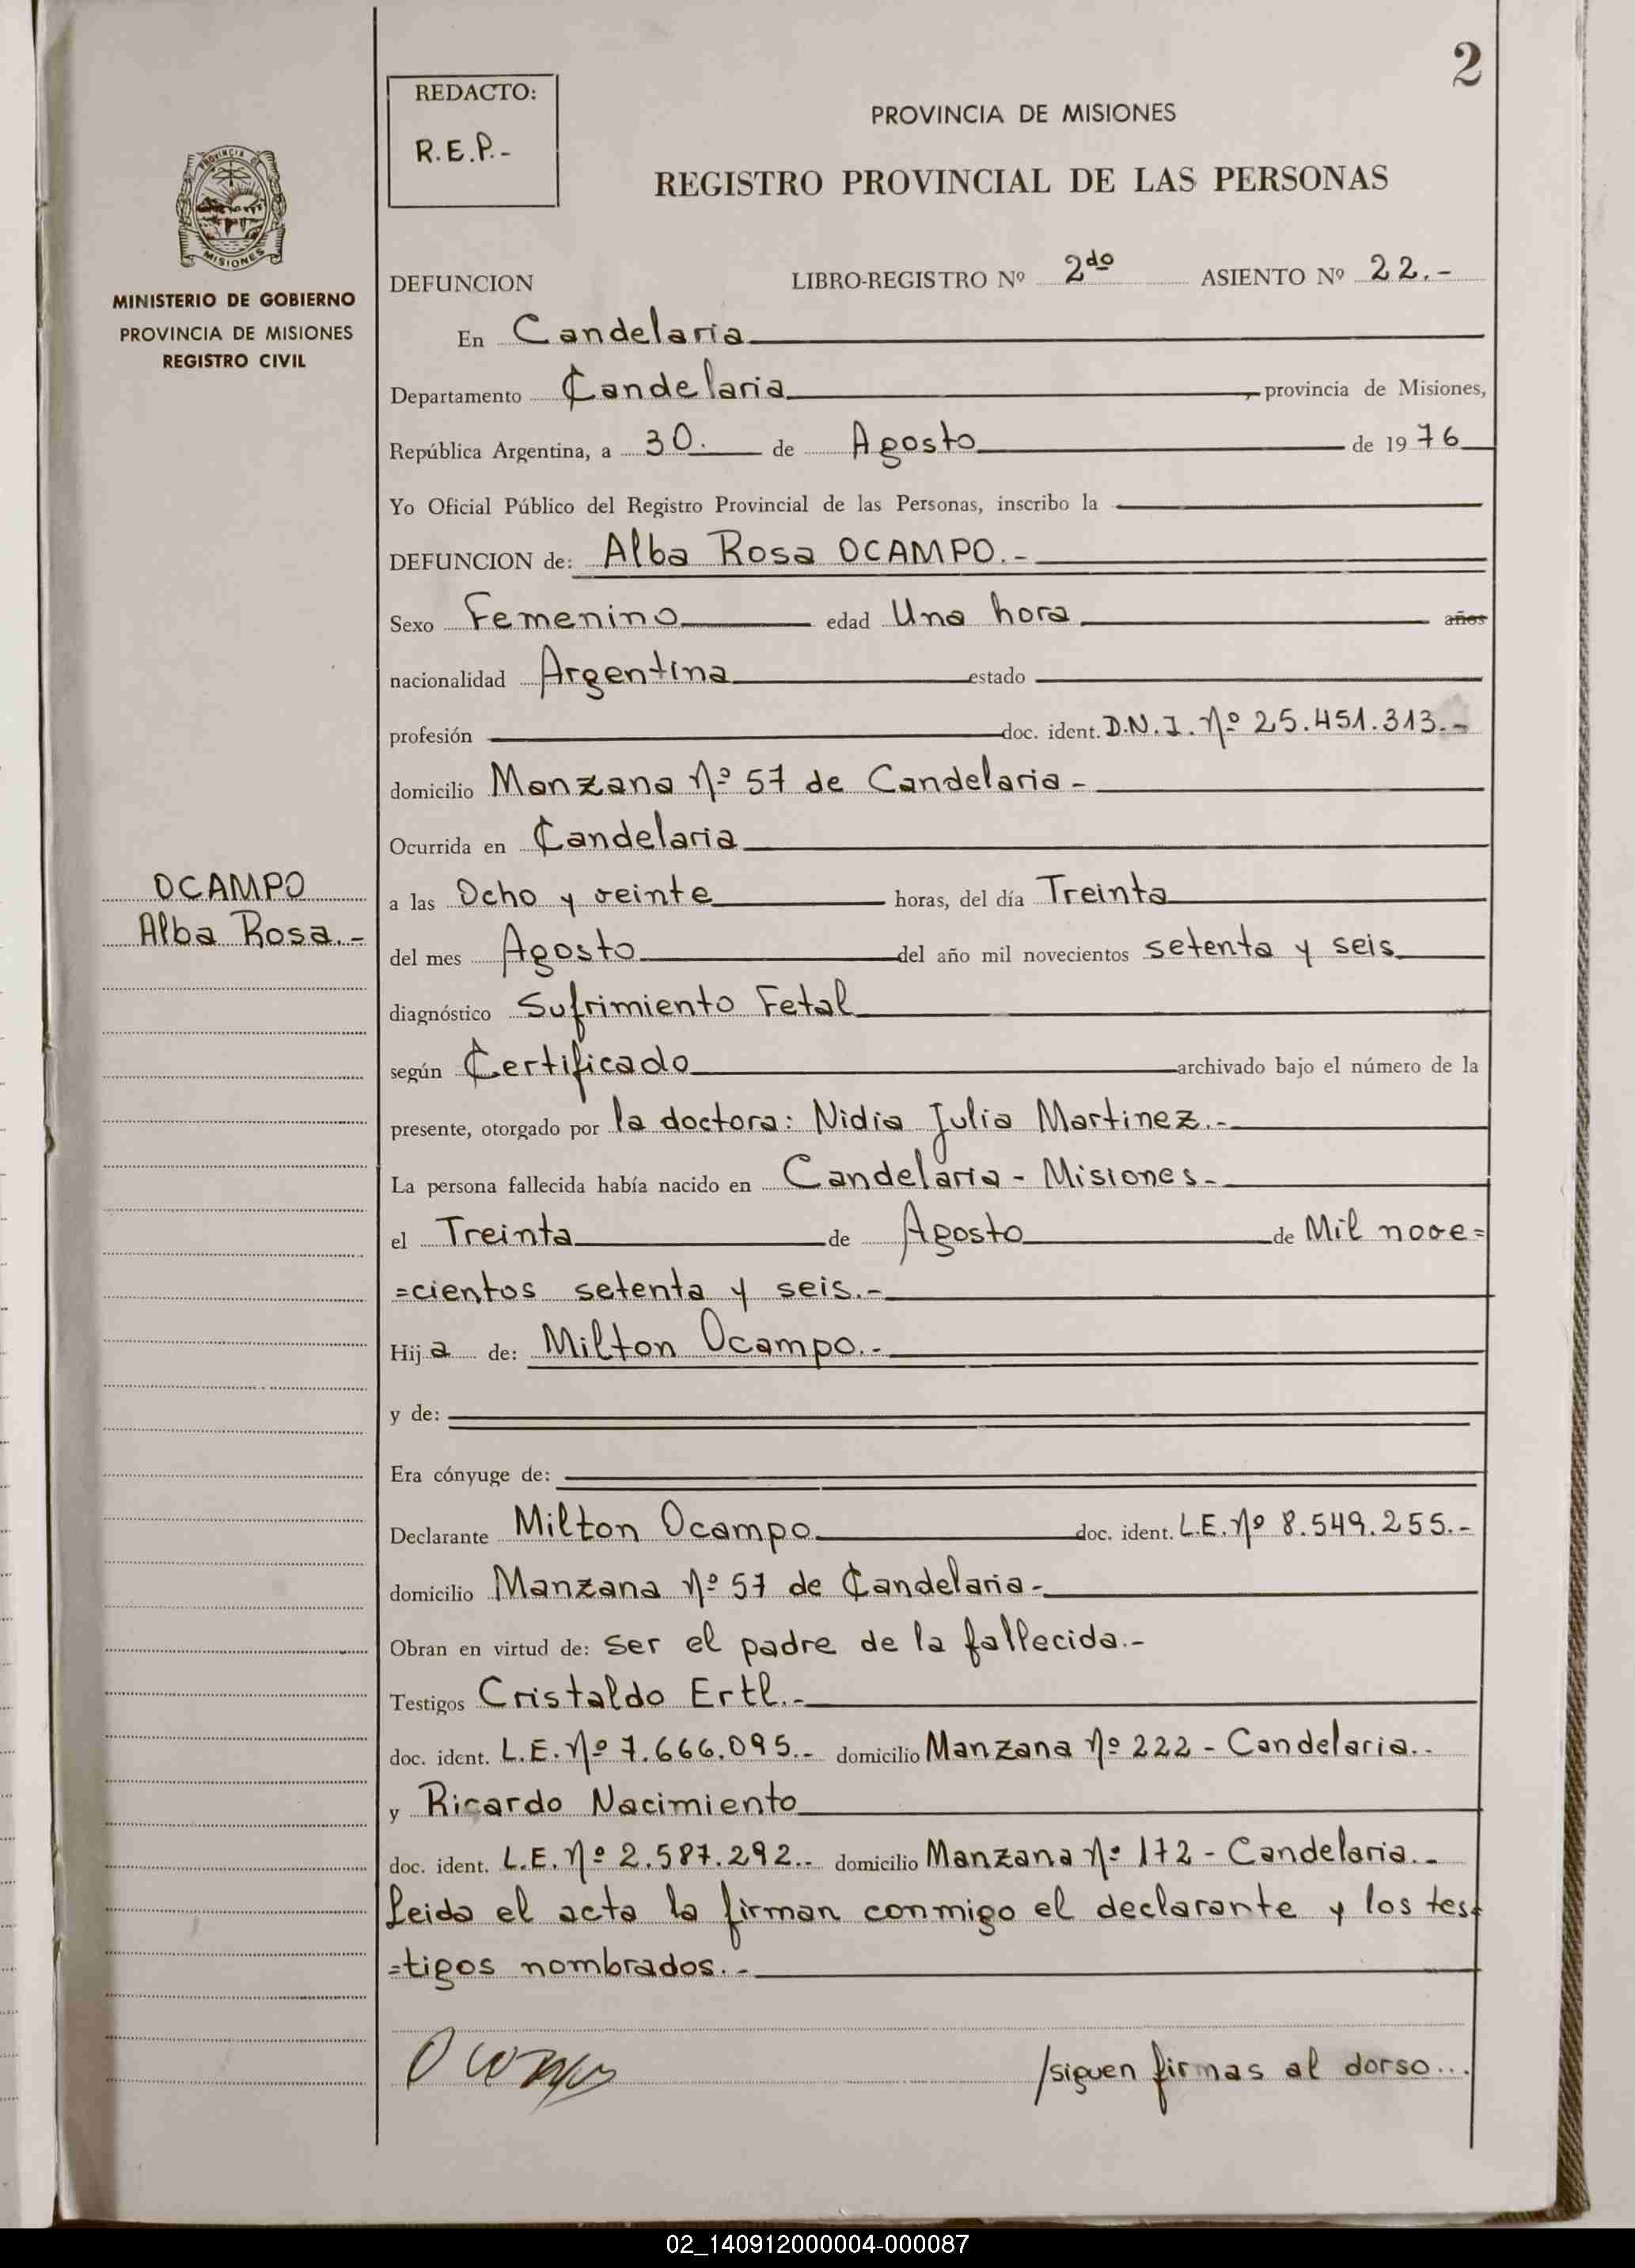 2
REDACTO:
R.E.P.-
PROVINCIA DE MISIONES
REGISTRO PROVINCIAL DE LAS PERSONAS
PROVINCIA DE
MISIONES
MINISTERIO DE GOBIERNO
PROVINCIA DE MISIONES
REGISTRO CIVIL
DEFUNCION LIBRO-REGISTRO Nº 2do ASIENTO Nº 22.-
En Candelaria
Departamento Candelaria, provincia de Misiones,
República Argentina, a 30. de Agosto de 1976
Yo Oficial Público del Registro Provincial de las Personas, inscribo la
DEFUNCION de: Alba Rosa OCAMPO.-
Sexo Femenino edad Una hora años
nacionalidad Argentina estado
profesión doc. ident. D.N.I. Nº 25.451.313.-
domicilio Manzana Nº 57 de Candelaria-
Ocurrida en Candelaria
OCAMPO
Alba Rosa.-
a las Ocho y veinte horas, del día Treinta
del mes Agosto del año mil novecientos setenta y seis
diagnóstico Sufrimiento Fetal
según Certificado archivado bajo el número de la
presente, otorgado por la doctora: Nidia Julia Martinez.-
La persona fallecida había nacido en Candelaria - Misiones-
el Treinta de Agosto de Mil nove=
=cientos setenta y seis.-
Hija de: Milton Ocampo.-
y de:
Era cónyuge de:
Declarante Milton Ocampo doc. ident. L.E. Nº 8.549.255.-
domicilio Manzana Nº 57 de Candelaria-
Obran en virtud de: ser el padre de la fallecida.-
Testigos Cristaldo Ertl.-
doc. ident. L.E. Nº 7.666.095.- domicilio Manzana Nº 222 - Candelaria.-
y Ricardo Nacimiento
doc. ident. L.E. Nº 2.587.292.- domicilio Manzana Nº 172 - Candelaria.-
Leida el acta la firman conmigo el declarante y los tes=
=tigos nombrados.-
Ocampo
/siguen firmas al dorso...
02_140912000004-000087